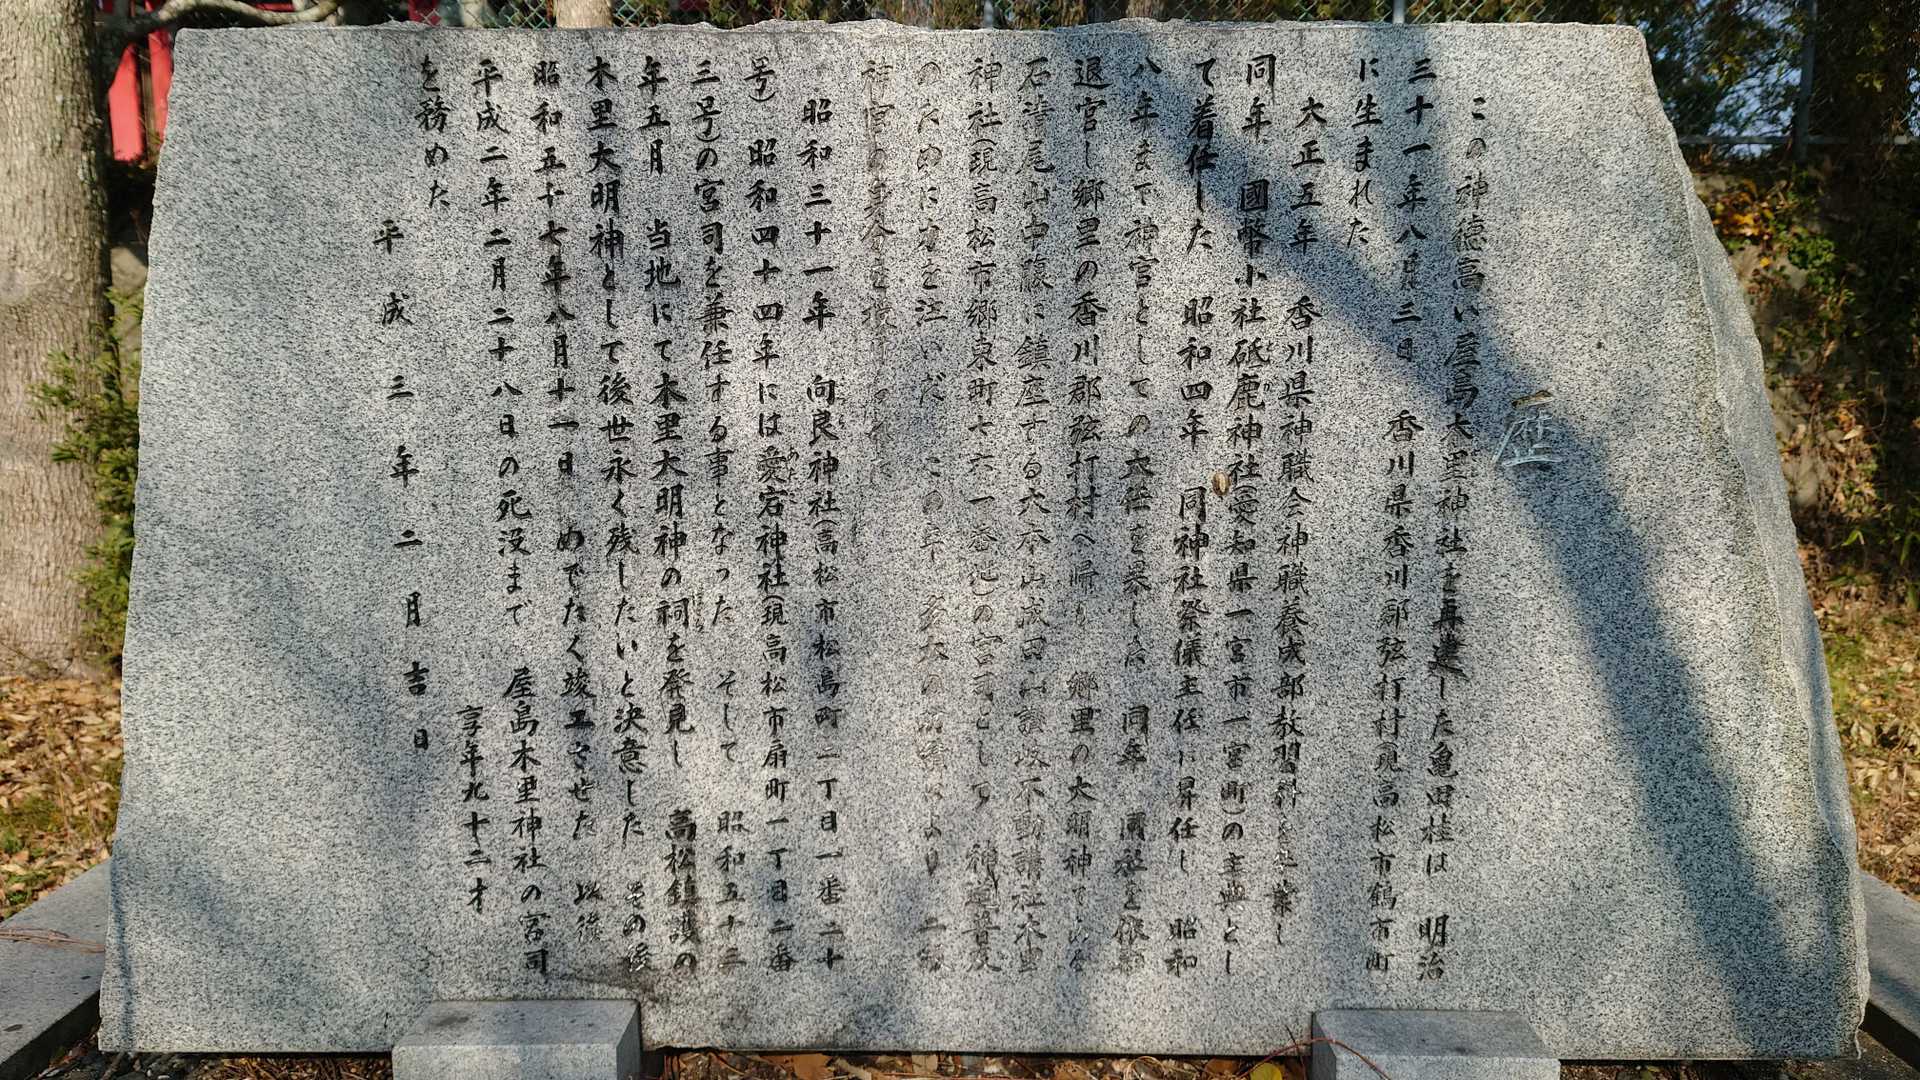 歴
この神徳高い屋島木里神社を再建した亀田桂は 明治
三十一年八月三日 香川県香川郡弦打村(現高松市鶴市町
に生まれた
大正五年 香川県神職会神職養成部教習科を卒業し
同年 國幣小社砥鹿神社(愛知県一宮市一宮町)の主典とし
て着任した 昭和四年 同神社祭儀主任に昇任し 昭和
八年まで神宮としての大任を果した 同年 同社を依願
退官し郷里の香川郡弦打村へ帰り 郷里の大明神である
石清尾山中腹に鎮座する大本山成田山讃岐不動講社木里
神社(現高松市郷東町七六一番地)の宮司として 神道普及
のために力を注いだ この年 多大の功績により 二
神宮の身分を
昭和三十一年 向良神社(高松市松島町二丁目一番二十
号) 昭和四十四年には愛宕神社(現高松市扇町一丁目二番
三号)の宮司を兼任する事となった そして 昭和五十三
年五月 当地にて木里大明神の祠を発見し 高松鎮護の
木里大明神として後世永く残したいと決意した その後
昭和五十七年八月十一日 めでたく竣工させた 以後
平成二年二月二十八日の死没まで 屋島木里神社の宮司
を務めた 享年九十二才
平成三年二月吉日